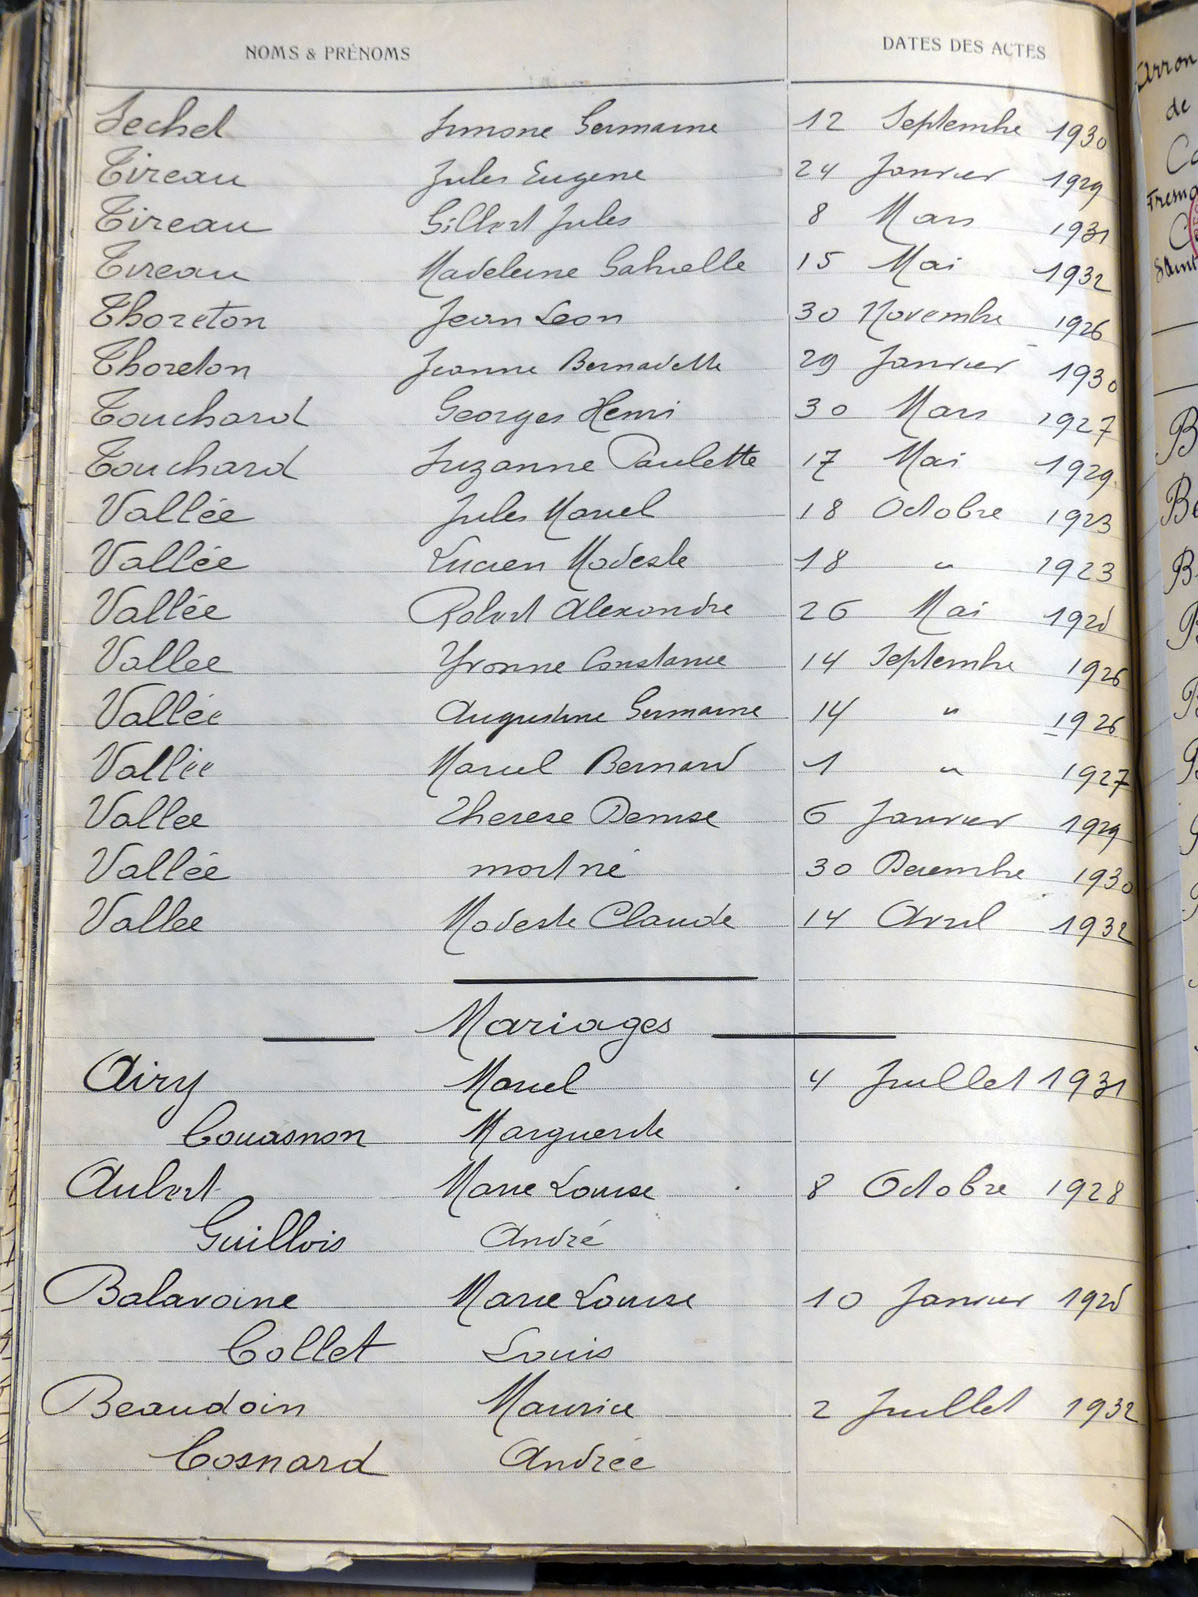 NOMS & PRÉNOMS DATES DES ACTES
Sechel Simone Germaine 12 Septembre 1930
Tireau Jules Eugene 24 Janvier 1929
Tireau Gilbert Jules 8 Mars 1931
Tireau Madeleine Gabrielle 15 Mai 1932
Thoreton Jean Leon 30 Novembre 1926
Thoreton Jeanne Bernadette 29 Janvier 1930
Touchard Georges Henri 30 Mars 1927
Touchard Suzanne Paulette 17 Mai 1929
Vallée Jules Marcel 18 Octobre 1923
Vallée Lucien Modeste 18 " 1923
Vallée Robert Alexandre 26 Mai 1925
Vallée Yvonne Constance 14 Septembre 1926
Vallée Augustine Germaine 14 " 1926
Vallée Marcel Bernard 1 " 1927
Vallee Therese Denise 6 Janvier 1929
Vallée mort né 30 Decembre 1930
Vallee Modeste Claude 14 Avril 1932
Mariages
Airy Marcel 4 Juillet 1931
Couasnon Marguerite
Aubert Marie Louise 8 Octobre 1928
Guillois André
Balavoine Marie Louise 10 Janvier 1925
Collet Louis
Beaudoin Maurice 2 Juillet 1932
Cosnard Andrée